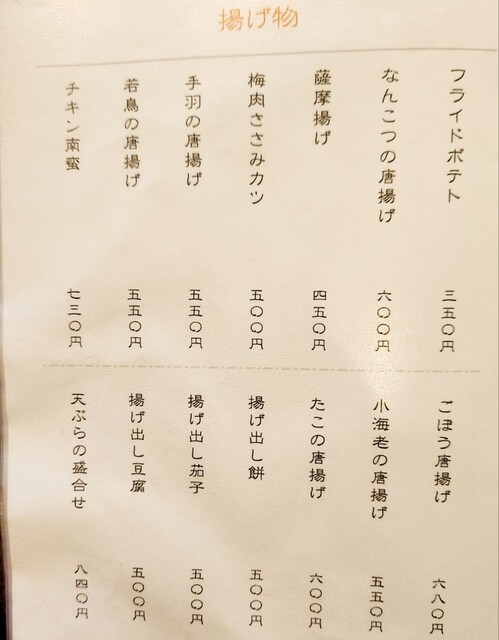 揚げ物
フライドポテト
三五〇円
なんこつの唐揚げ
六〇〇円
薩摩揚げ
四五〇円
梅肉ささみカツ
五〇〇円
手羽の唐揚げ
五五〇円
若鳥の唐揚げ
五五〇円
チキン南蛮
七三〇円
ごぼう唐揚げ
六八〇円
小海老の唐揚げ
五五〇円
たこの唐揚げ
六〇〇円
揚げ出し餅
五〇〇円
揚げ出し茄子
五〇〇円
揚げ出し豆腐
五〇〇円
天ぷらの盛合せ
八四〇円